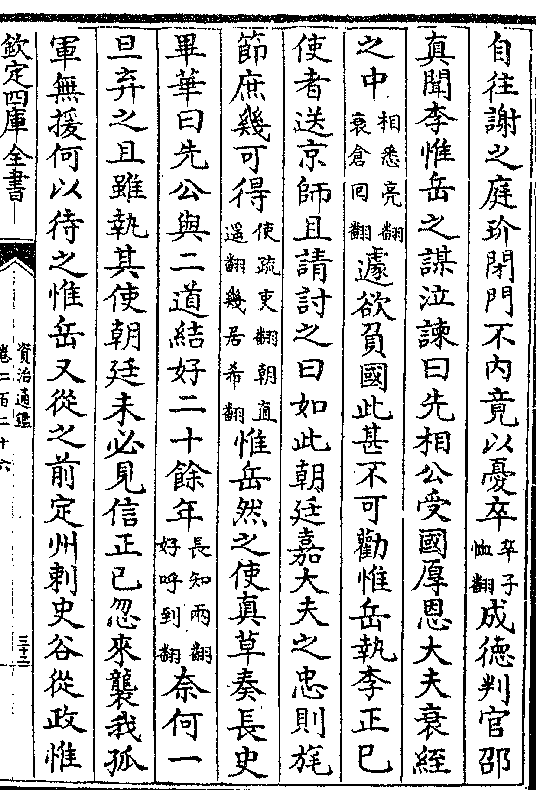 自往謝之庭玠閉門不內竟以憂卒卒子恤翻成徳判官邵
真聞李惟岳之謀泣諫曰先相公受國厚恩大夫衰絰
之中相悉亮翻衰倉回翻遽欲負國此甚不可勸惟岳執李正已
使者送京師且請討之曰如此朝廷嘉大夫之忠則旄
節庶幾可得使疏吏翻朝直遥翻幾居希翻惟岳然之使真草奏長史
畢華曰先公與二道結好二十餘年長知兩翻好呼到翻奈何一
旦弃之且雖執其使朝廷未必見信正已忽來襲我孤
軍無援何以待之惟岳又從之前定州刺史谷從政惟
欽定四庫全書
資治通鑑
卷二百二十六
三十二